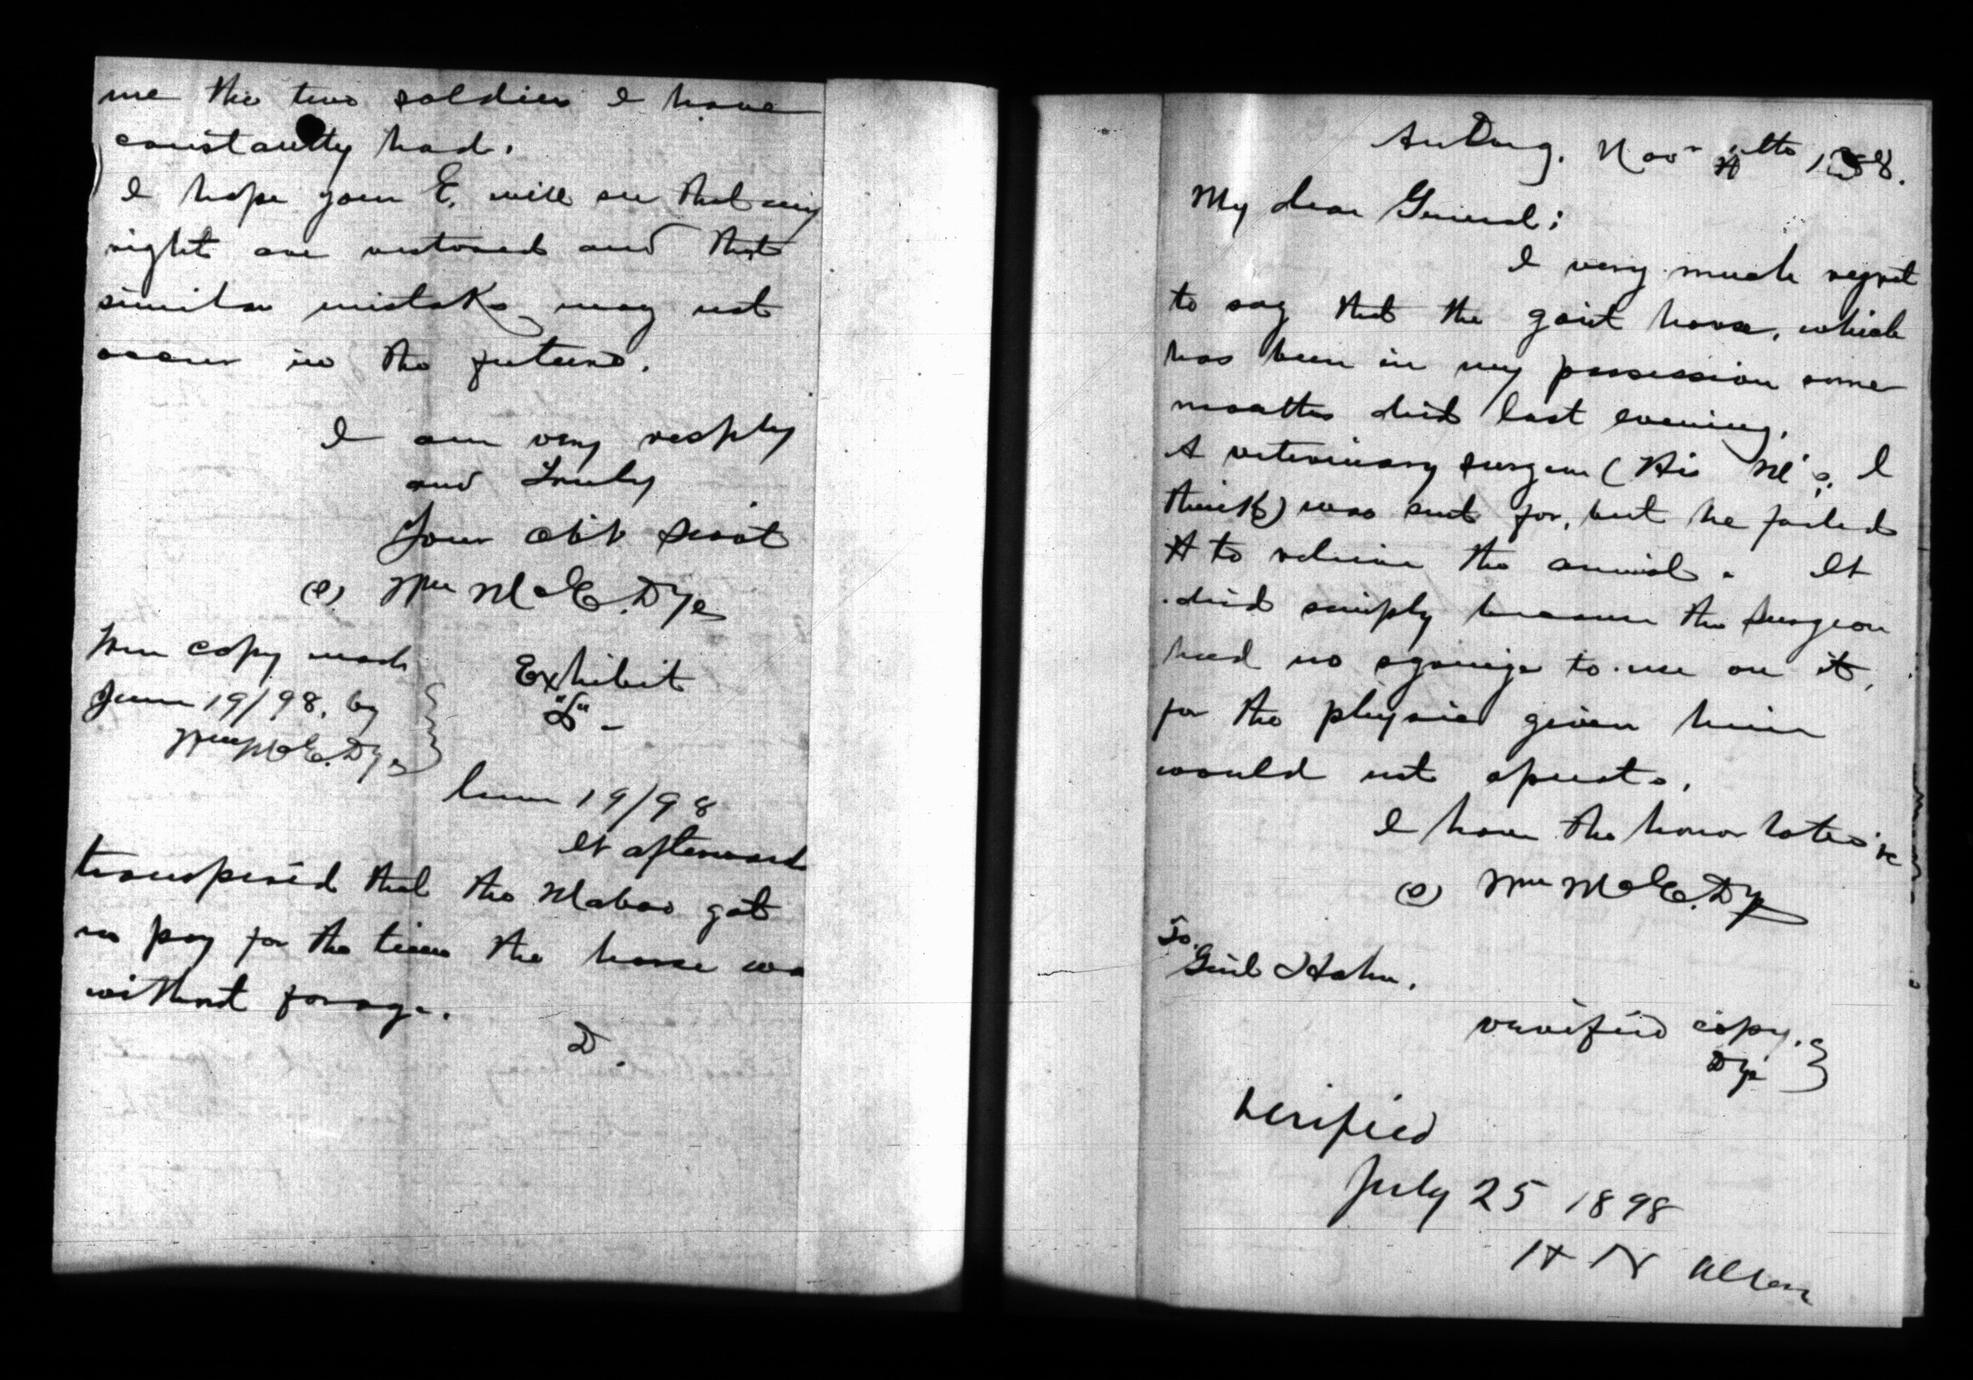 me the two soldiers I have
constantly had.
I hope your E. will see that my
right are restored and that
similar mistake may not
occur in the future.
I am very respfly
and Truly
Your obt Servt
(s) Wm McE. Dye
True copy made
June 19/98, by
Wm McE. Dye
Exhibit
June 19/98
It afterward
transpired that the Maboo got
no pay for the time the horse was
without forage.
D.
An Dong. Nov 1888.
My dear General;
I very much regret
to say that the gov't horse, which
has been in my possession some
months died last evening.
A veterinary surgeon (His I
think) was sent for, but he failed
to relieve the animal. It
died simply because the Surgeon
had no syringe to use on it,
for the physic given him
would not operate.
I have the honor to be
(s) Wm McE. Dye
To.
Genl Hahn.
verified copy.
Dye
Verified
July 25 1898
H N Allen